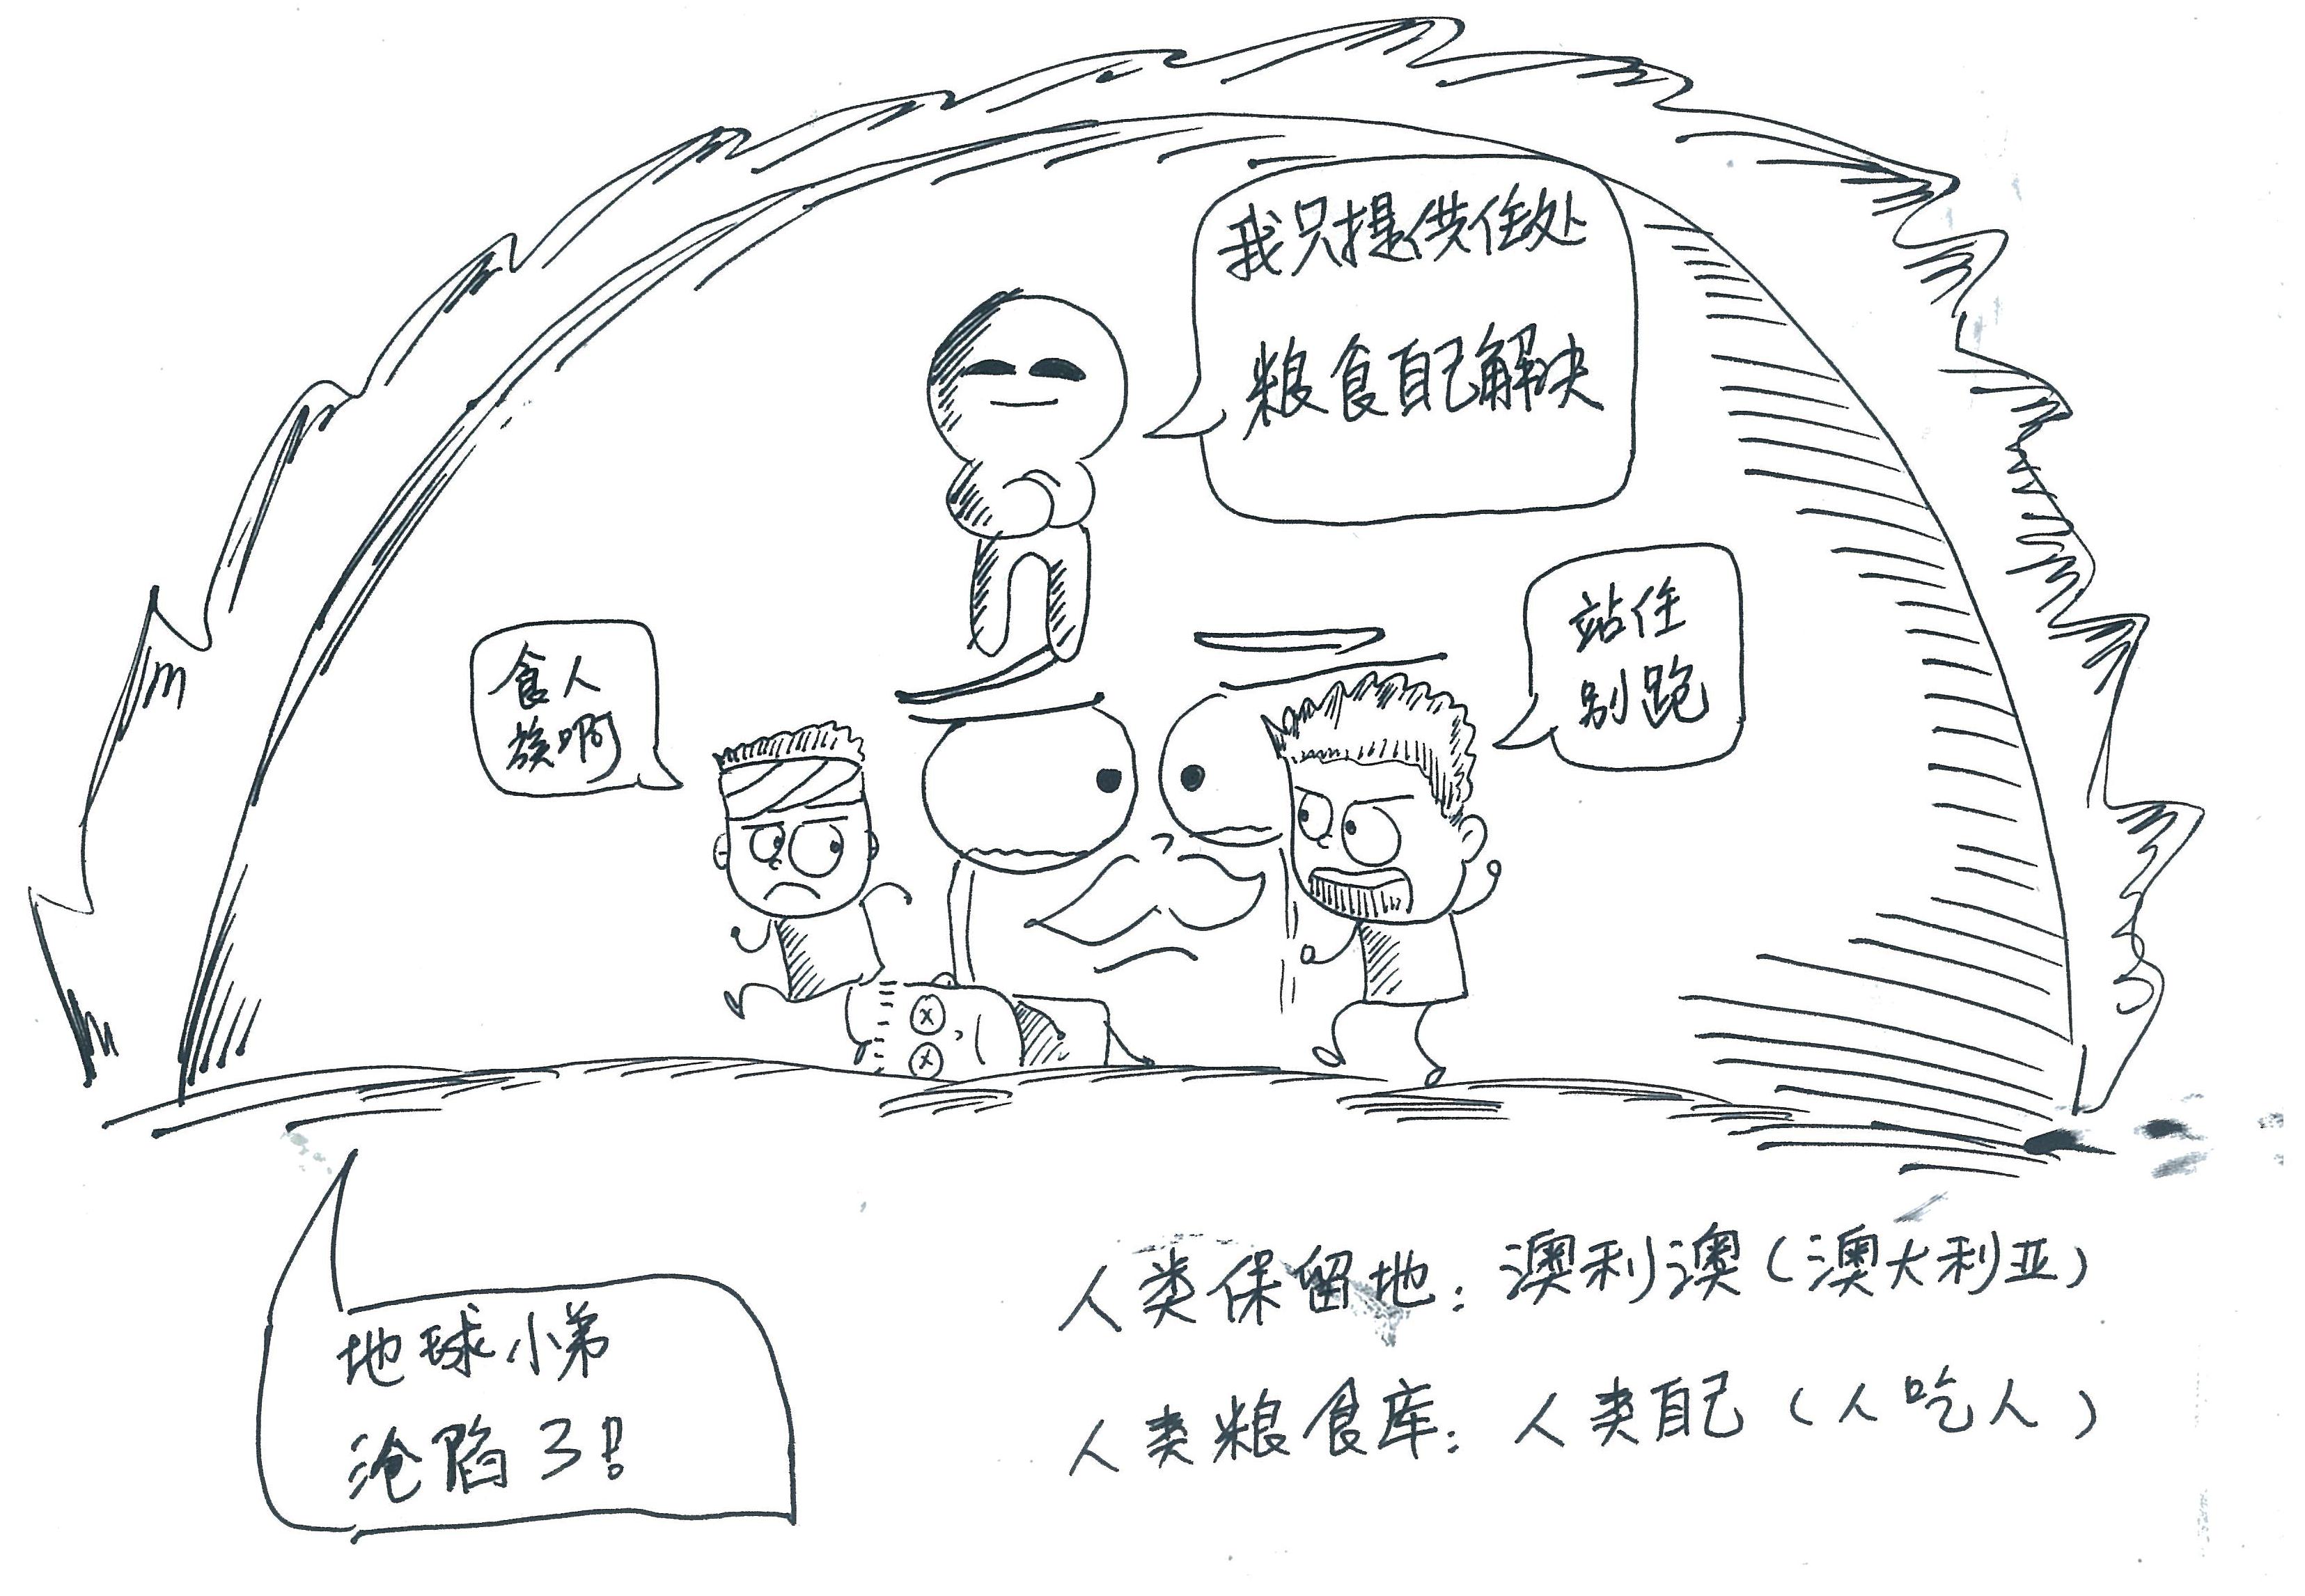 我只提供住处
粮食自己解决
站住
别跑
食人
族啊
地球小弟
沦陷了!
人类保留地：澳利澳（澳大利亚）
人类粮食库：人类自己（人吃人）